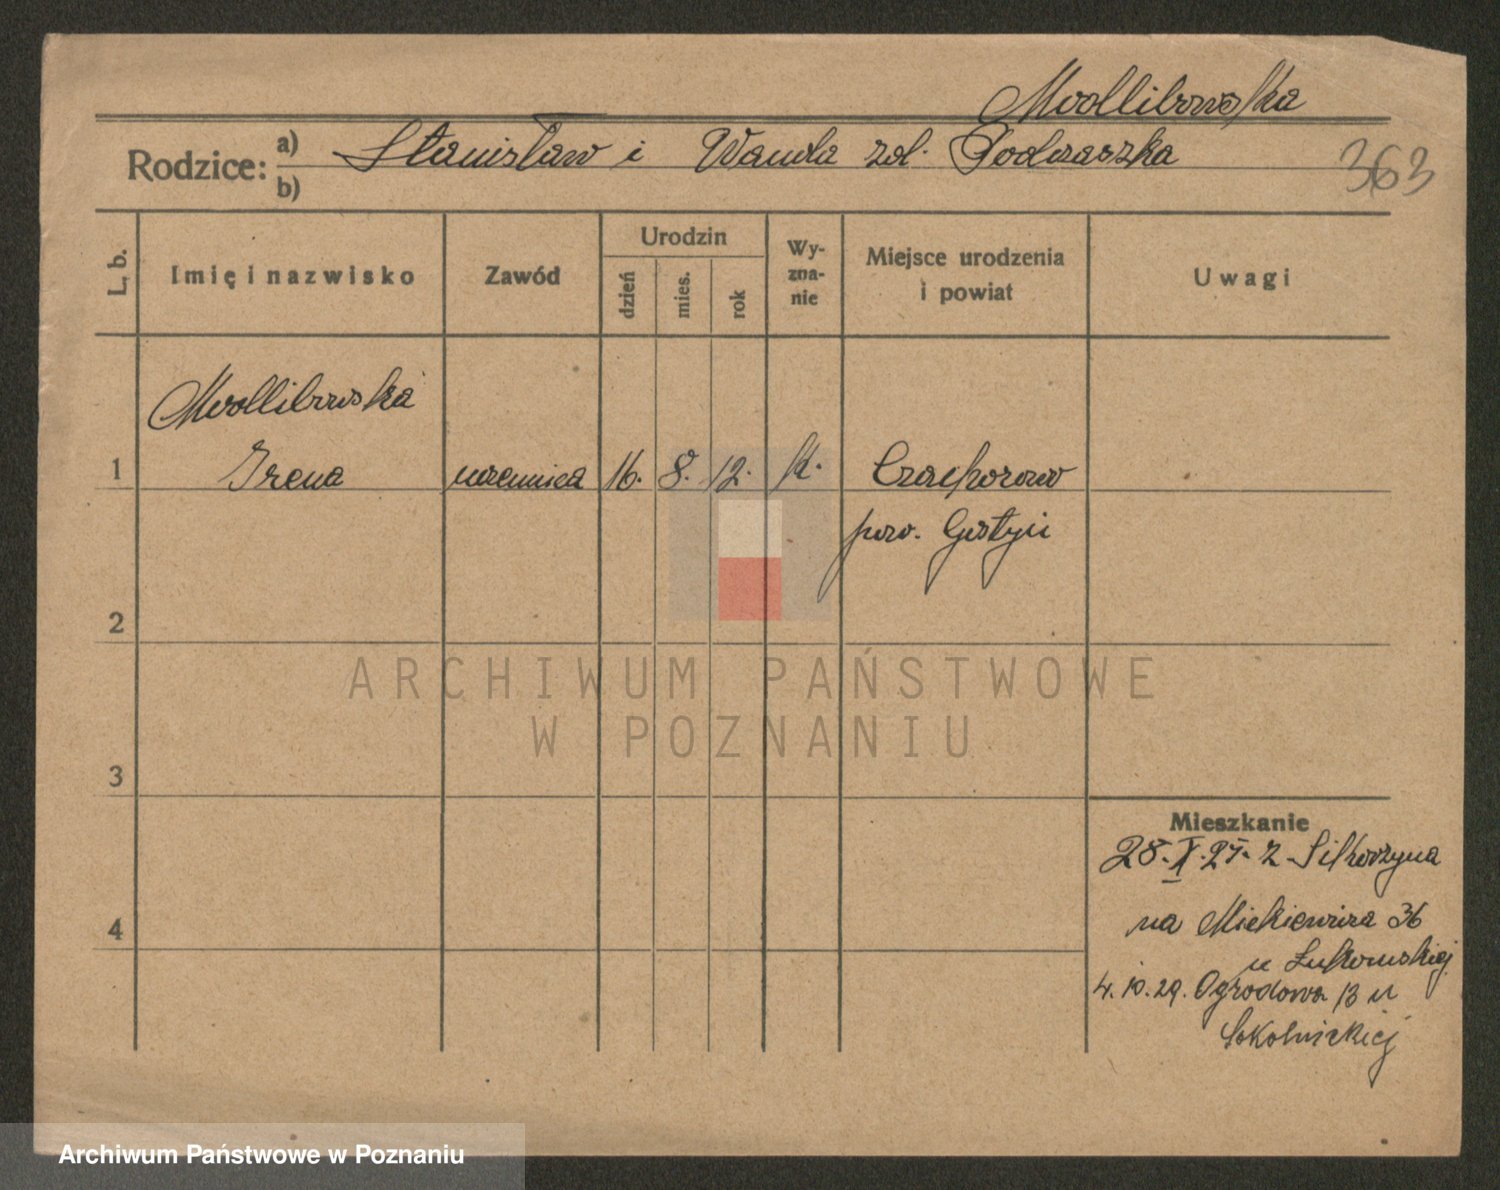 Mollibowska
Rodzice: a) Stanisław i Wanda zd. Podraszka
b)
363
L. b.
Imię i nazwisko
Zawód
Urodzin
dzień
mies.
rok
Wy-
zna-
nie
Miejsce urodzenia
i powiat
Uwagi
Mollibowska
1 Irena uczennica 16. 8. 12. k. Czachorowo
pow. Gostyń
2
ARCHIWUM PAŃSTWOWE
W POZNANIU
3
Mieszkanie
28. X. 27. z Sikorzyna
na Mickiewicza 36
4
u Łukomskiej
4. 10. 29. Ogrodowa 13 u
Sokolnickiej
Archiwum Państwowe w Poznaniu